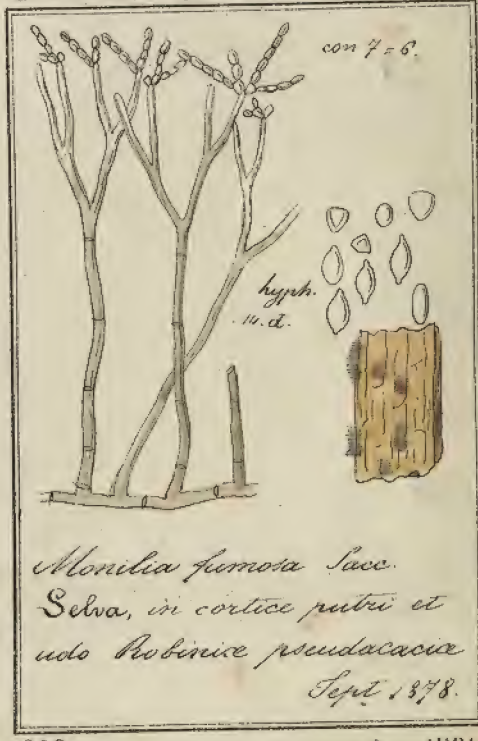 con 7 = 6.
hyph.
14. d.
Monilia fumosa Sacc.
Selva, in cortice putri et
udo Robiniæ pseudacaciæ
Sept 1878.